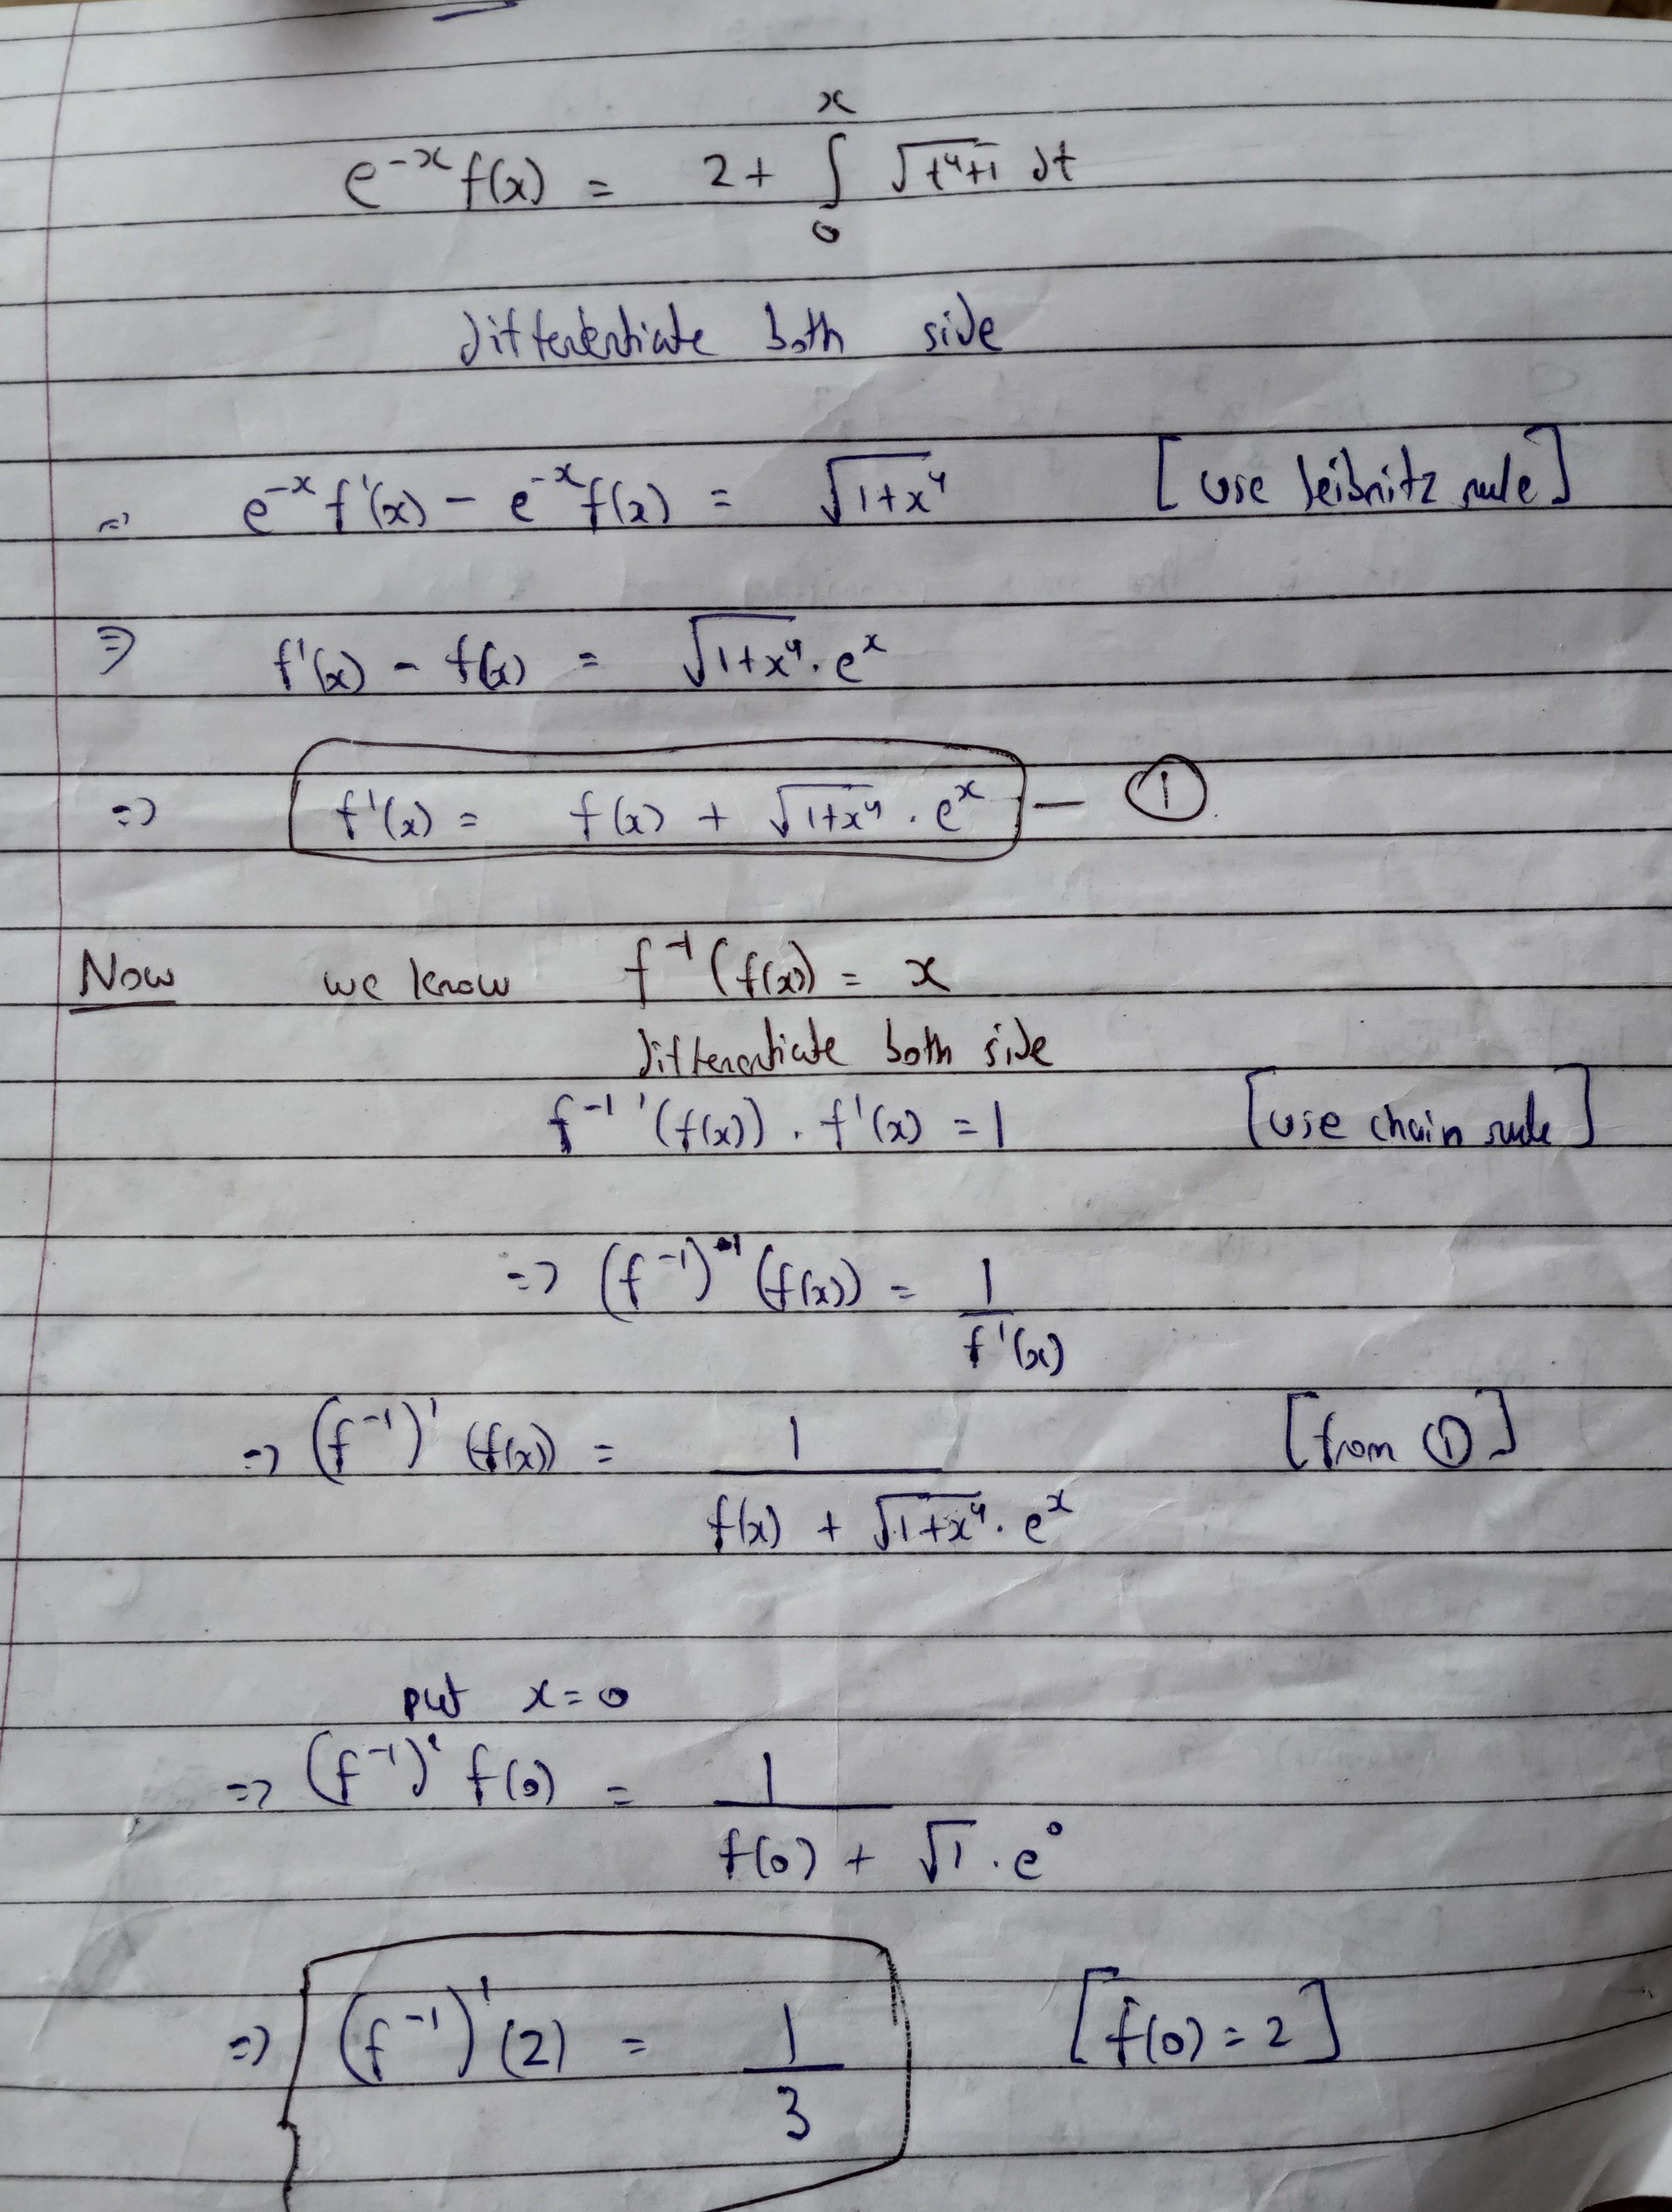 e^{-x} f(x) = 2 + ∫_0^x √(t⁴+1) dt
differentiate both side
⇒ e^{-x} f'(x) - e^{-x} f(x) = √(1+x⁴) [use leibnitz rule]
⇒ f'(x) - f(x) = √(1+x⁴) . e^x
⇒ f'(x) = f(x) + √(1+x⁴) . e^x — ①
Now we know f^{-1}(f(x)) = x
differentiate both side
f^{-1}'(f(x)) . f'(x) = 1 [use chain rule]
⇒ (f^{-1})'(f(x)) = 1/f'(x)
⇒ (f^{-1})'(f(x)) = 1/(f(x) + √(1+x⁴) . e^x) [from ①]
put x = 0
⇒ (f^{-1})' f(0) = 1/(f(0) + √1 . e^0)
⇒ (f^{-1})'(2) = 1/3 [f(0) = 2]